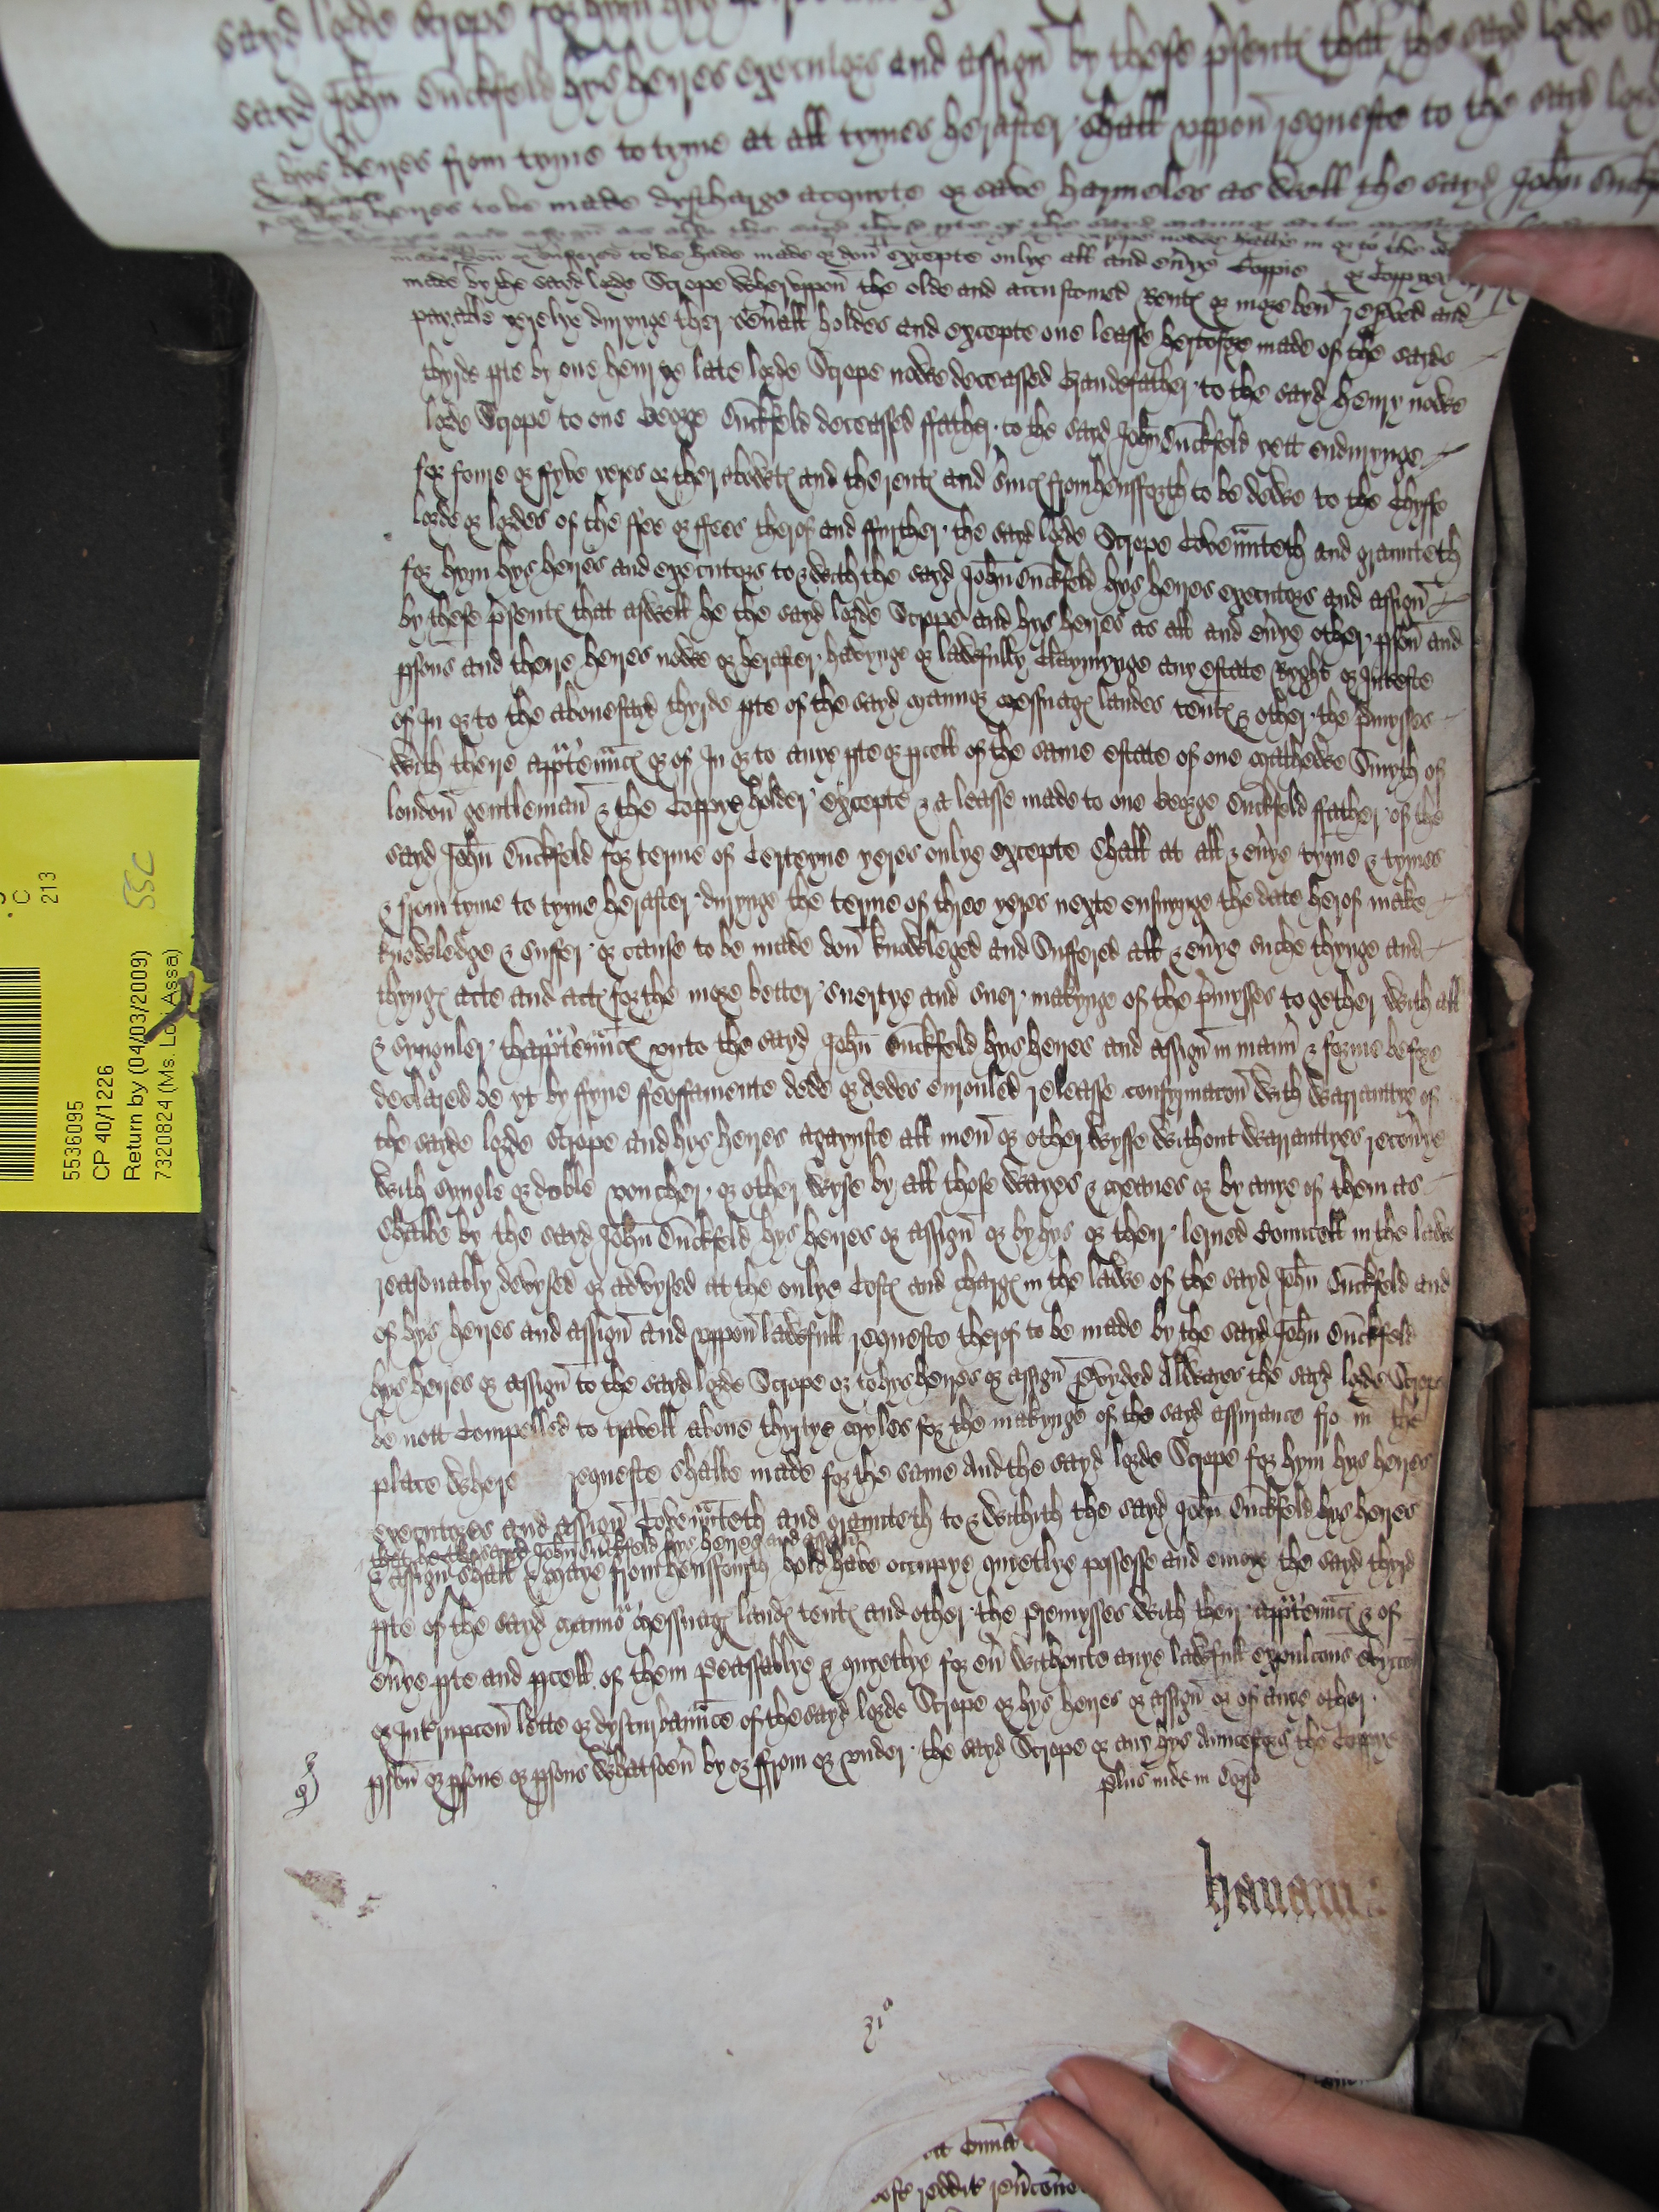 sayd lorde Scrope for hym hys heyres
sayd John Suckfeld hys heyres executors and assign by these psent that the sayd lorde
& hys heyres from tyme to tyme at all tymes herafter shall vppon requeste to the sayd lord
heyres to be made dyscharge acquyte & save harmeles as well the sayd John Suck
to be hade made & don excepte onlye all and evye Coppie & Coppyes
made by the sayd lorde Scrope wheruppon the olde and accustomed Rent & more ben resved and
payable yerelye durynge ther sevall holdes and excepte one leasse hertofore made of the sayde
thyrde pte by one henrye late lorde Scrope nowe deceassed Grandefather to the sayd henry nowe
lorde Scrope to one George Suckfeld deceassed ffather to the sayd John Suckfeld yett endurynge
for foure or ffyve yeres or ther abowt and the rent and svic from hensforth to be dewe to the Chyffe
lorde or lordes of the ffee or ffees therof and ffurther the sayd lorde Scrope Covennteth and graunteth
for hym hys heyres and executors to & with the sayd John Suckfeld hys heyres executors and assign
by these psent that aswell he the sayd lorde Scrope and hys heyres as all and evye other pson and
psons and theyre heyres nowe or herafter havynge or lawfully Claymynge any estate Ryght or Intreste
of In or to the abovesayd thyrde pte of the sayd mannor messuag landes tent & other the pmysses
with theyre apptennc & of In or to anye pte or pcell of the same estate of one Mathewe Smyth of
london gentleman & the Coppye holder excepte & a leasse made to one George Suckfeld ffather of the
sayd John Suckfeld for terme of Certeyne yeres onlye excepte shall at all & evye tyme & tymes
& from tyme to tyme herafter durynge the terme of three yeres nexte ensuynge the date herof make
knowledge & suffer or cause to be made don knowleged and Suffered all & evye suche thynge and
thyng acte and act for the more better suertye and suer makynge of the pmysses to gether with all
& synguler thapptennc vnto the sayd John Suckfeld hys heyres and assign in mann & forme before
declared be yt by ffyne ffeoffamente dede or dedes enrouled releasse confyrmacon with warrantye of
the sayde lorde Scrope and hys heyres agaynste all men or other wysse without warrantyes recovye
with syngle or doble voucher or other wyse by all those wayes & meanes or by anye of them as
shalbe by the sayd John Suckfeld hys heyres or assign or by hys or their lerned Councell in the lawe
reasonably devysed or advysed at the onlye Cost and charg in the lawe of the sayd John Suckfeld and
of hys heyres and assign and vppon lawfull requeste therof to be made by the sayd John Suckfeld
hys heyres or assign to the sayd lorde Scrope or to hys heyres or assign Pvyded Alwayes the sayd lorde Scrope
be nott Compelled to travell above thyrtye myles for the makynge of the sayd assurance fro m the
place where requeste shalbe made for the same And the sayd lorde Scrope for hym hys heyres
executores and assign Covennteth and graunteth to & withith the sayd John Suckfeld hys heyres
that he the sayd John Suckfeld hys heyres and assign
& assign shall & maye from hensfourth hold have occupye quietlye possesse and enioye the sayd thyrd
pte of the sayd mannor messuag land tent and other the premysses with ther apptennc & of
evye pte and pcell of them peassablye & quyetlye for ev withoute anye lawfull expulcons
or Intrupcon lette or dysturbaunce of the sayd lorde Scrope or hys heyres or assign or of anye other
pson or psone or psons whatsoev by or ffrom or vnder the sayd Scrope or any hys Auncestors the Coppye
plus inde in dorso
5536095
CP 40/1226
Return by (04/03/2009)
7320824 (Ms. Lori Assa)
C
213
SSC